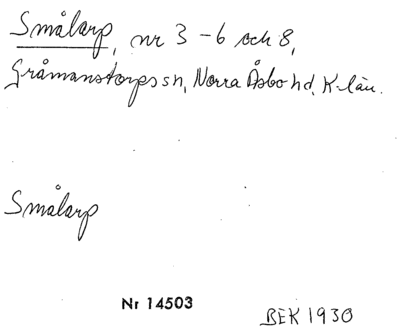 Smålarp, nr 3-6 och 8,
Gråmanstorps sn, Norra Åsbo hd, K-län.
Smålarp
Nr 14503
BEK 1930